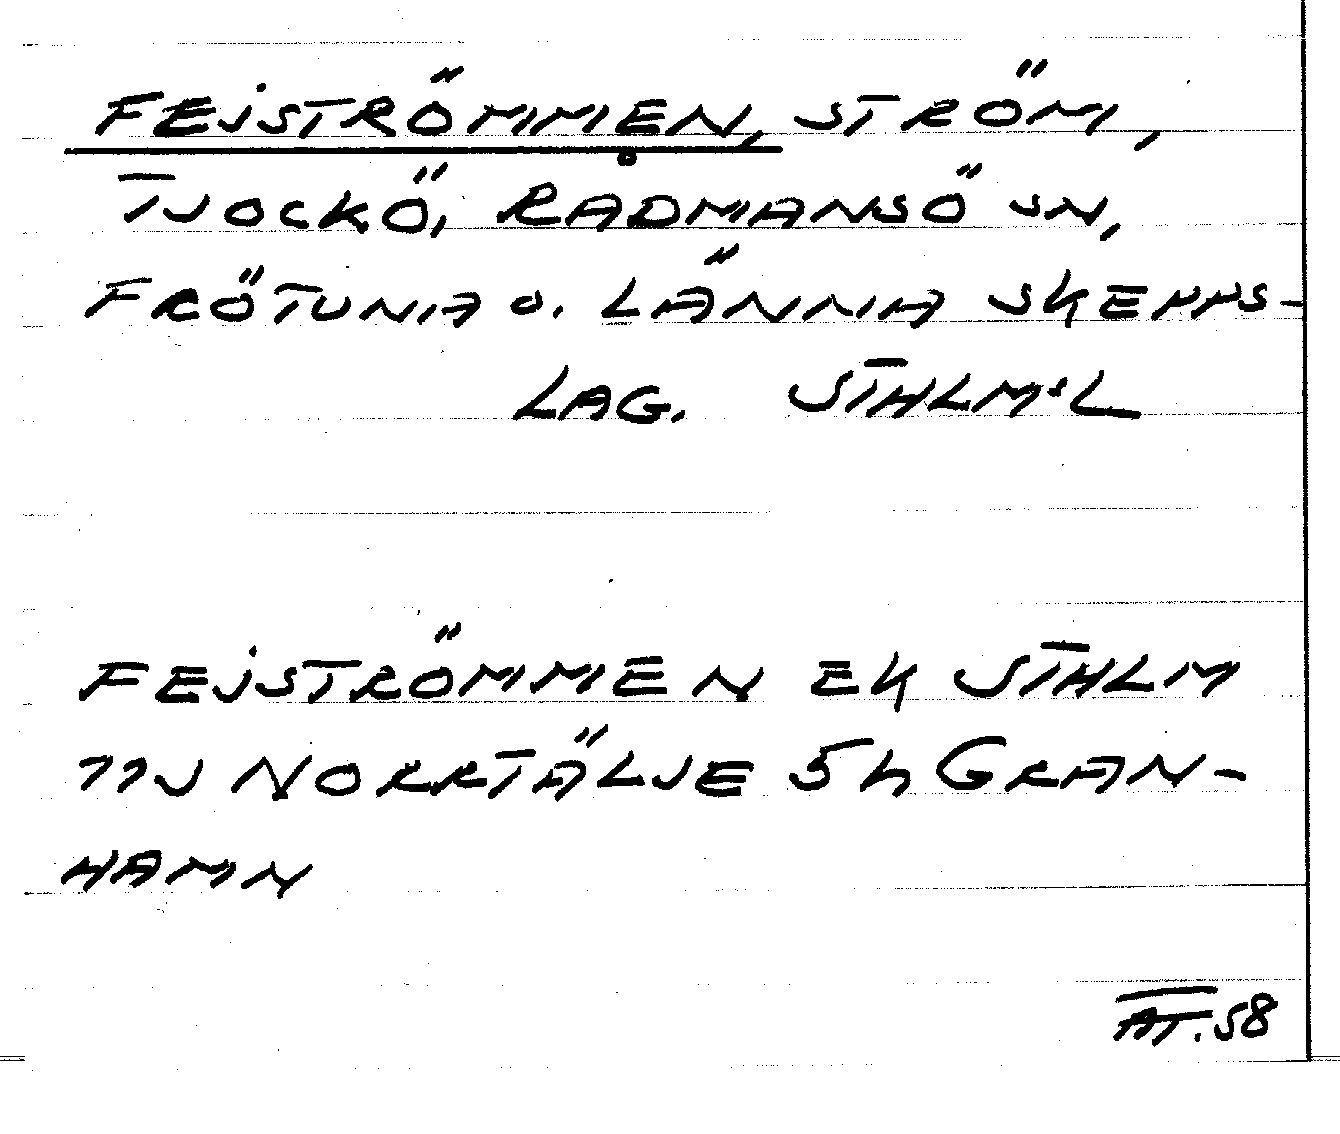 FEJSTRÖMMEN, STRÖM,
TJOCKÖ, RÅDMANSÖ SN,
FRÖTUNA O. LÄNNA SKEPPS-
LAG. STHLMSL
FEJSTRÖMMEN EK STHLM
11J NORRTÄLJE 5h GRAN-
HAMN
AT. 58